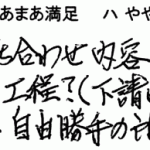 あまあ満足 ハ やや
ち合わせ 内容
工程?(下請
自由勝手の